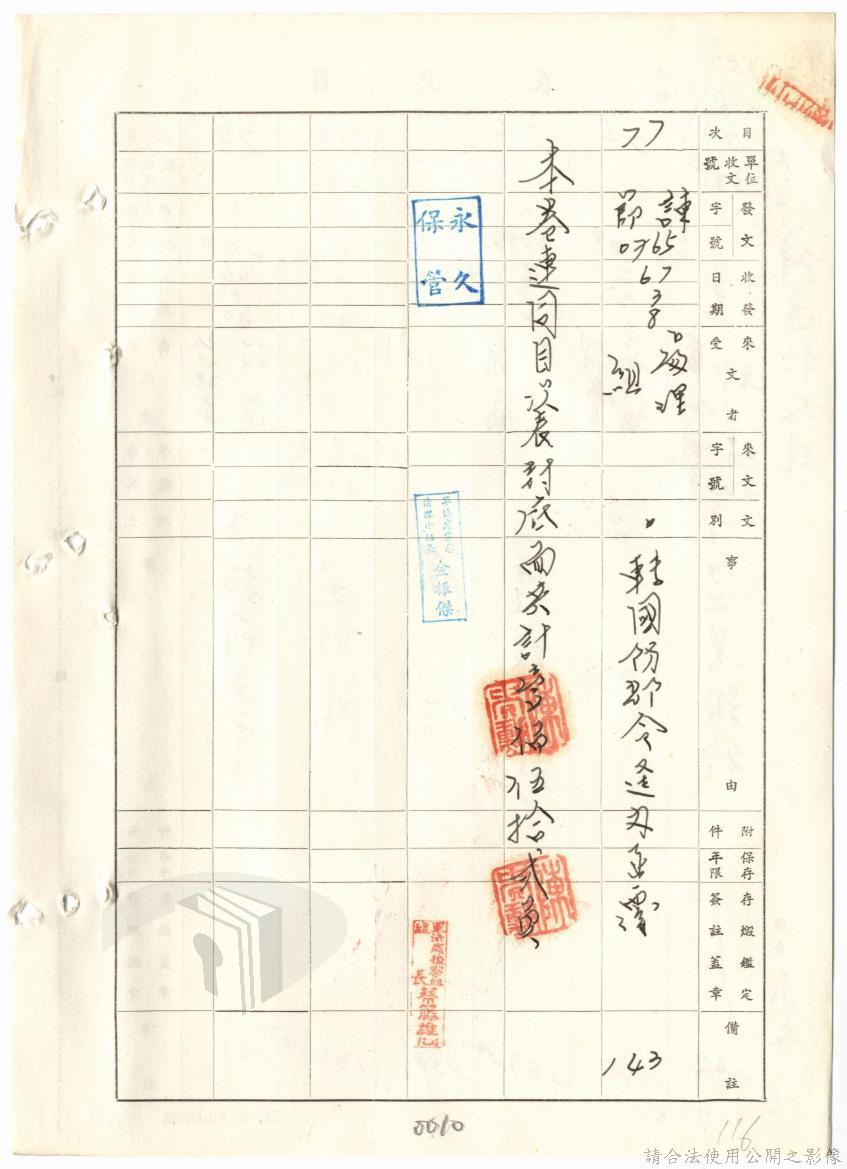 目次
單位收文號
發文字號
收發日期
來文受文者
來文字號
文別
事由
附件
保存年限
存燬鑑定簽註蓋章
備註
77
諫節0765
67 3 8
處理組
轉國防部令
143
本卷連同目次表封底面共計壹佰伍拾貳頁
永久保管
金振傑
軍法處檢察組組長蔡籐雄
0010
116
請合法使用公開之影像